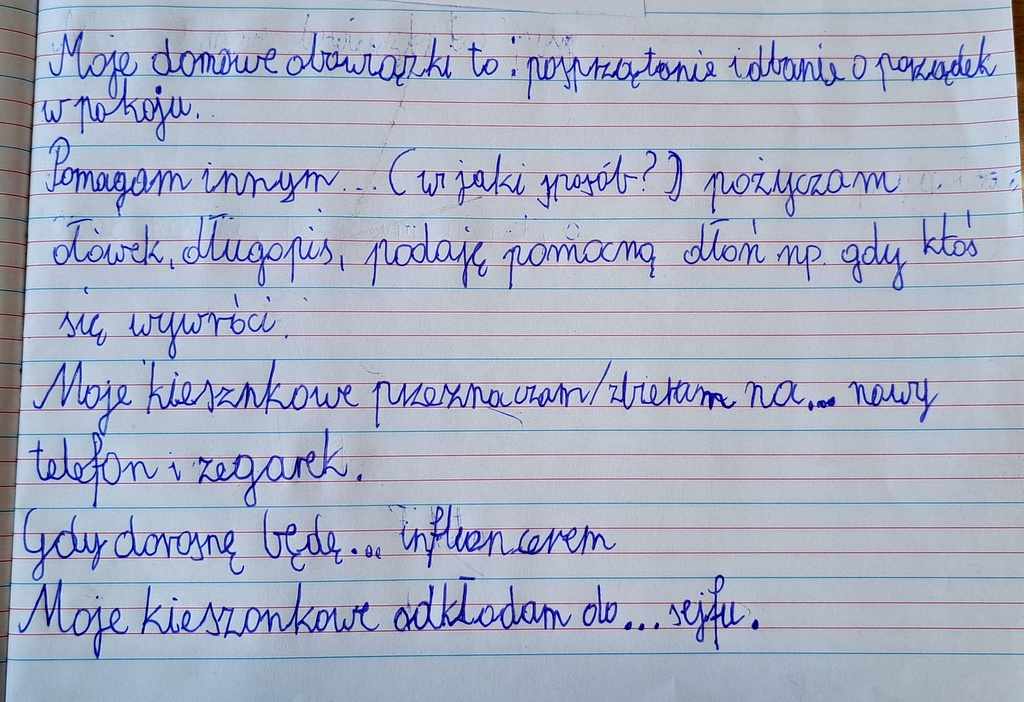 Moje domowe obowiązki to : posprzątanie i dbanie o porządek
w pokoju.
Pomagam innym... (w jaki sposób?) pożyczam
ołówek, długopis, podaję pomocną dłoń np. gdy ktoś
się wywróci.
Moje kiesznkowe przeznaczam/zbieram na... nowy
telefon i zegarek.
Gdy dorosnę będę... influencerem
Moje kieszonkowe odkładam do... sejfu.